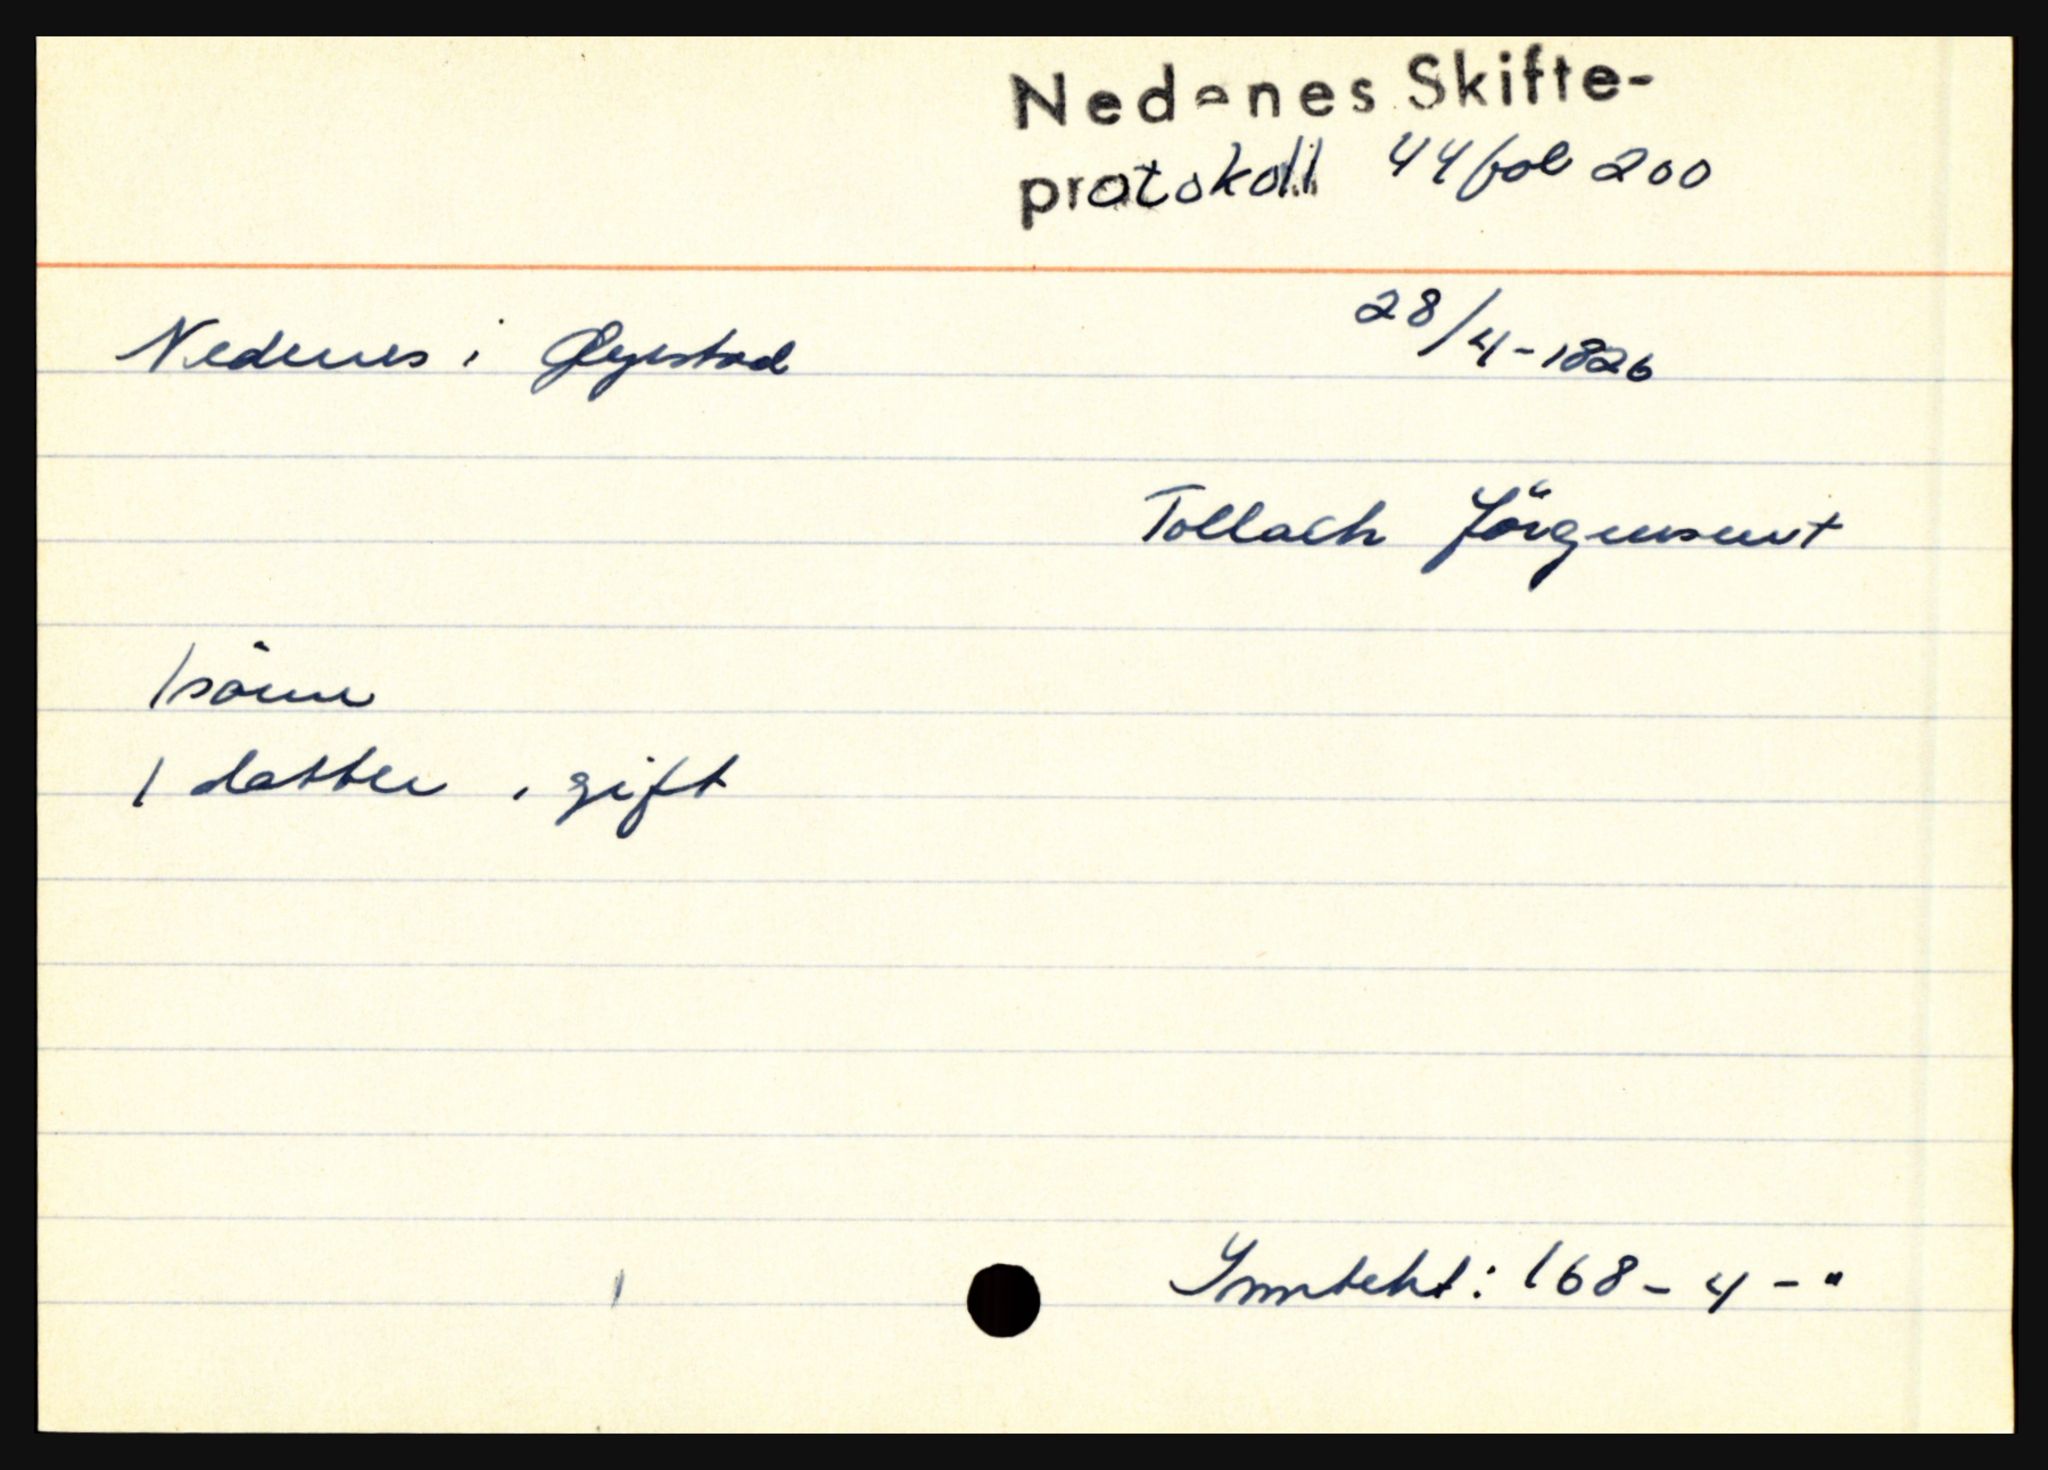 Nedenes Skifte-
protokoll 44 fol 200
Nedenes i Øyestad 28/4-1826
Tollach Jörgensen†
1 sönn
1 datter , gift
Inntekt: 168-4-"